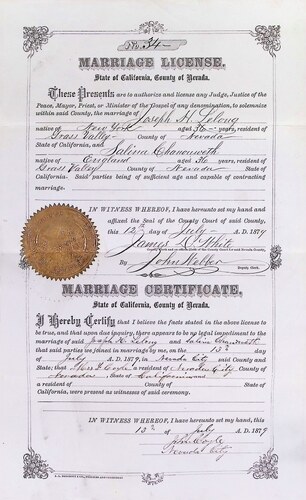 No. 34
MARRIAGE LICENSE.
State of California, County of Nevada.
These Presents are to authorize and license any Judge, Justice of the
Peace, Mayor, Priest, or Minister of the Gospel of any denomination, to solemnize
within said County, the marriage of Joseph H. Lelong
native of New York aged 36 years, resident of
Grass Valley County of Nevada
State of California, and Salina
native of England aged 36 years, resident of
Grass Valley County of Nevada State of
California. Said parties being of sufficient age and capable of contracting
marriage.
IN WITNESS WHEREOF, I have hereunto set my hand and
affixed the Seal of the County Court of said County,
this 12th day of July A.D. 1879
James D. White
By John Webber
Deputy Clerk.
MARRIAGE CERTIFICATE.
State of California, County of Nevada.
I Hereby Certify that I believe the facts stated in the above license to
be true, and that upon due inquiry, there appears to be no legal impediment to the
marriage of said Joseph H. Lelong and Salina
that said parties were joined in marriage by me, on the 13th day
of July A.D. 1879, in Nevada City said County and
State; that a resident of Nevada City, County of
Nevada, State of California and
a resident of County of State of
California, were present as witnesses of said ceremony.
IN WITNESS WHEREOF, I have hereunto set my hand, this
13th July A.D. 1879
John
Nevada City